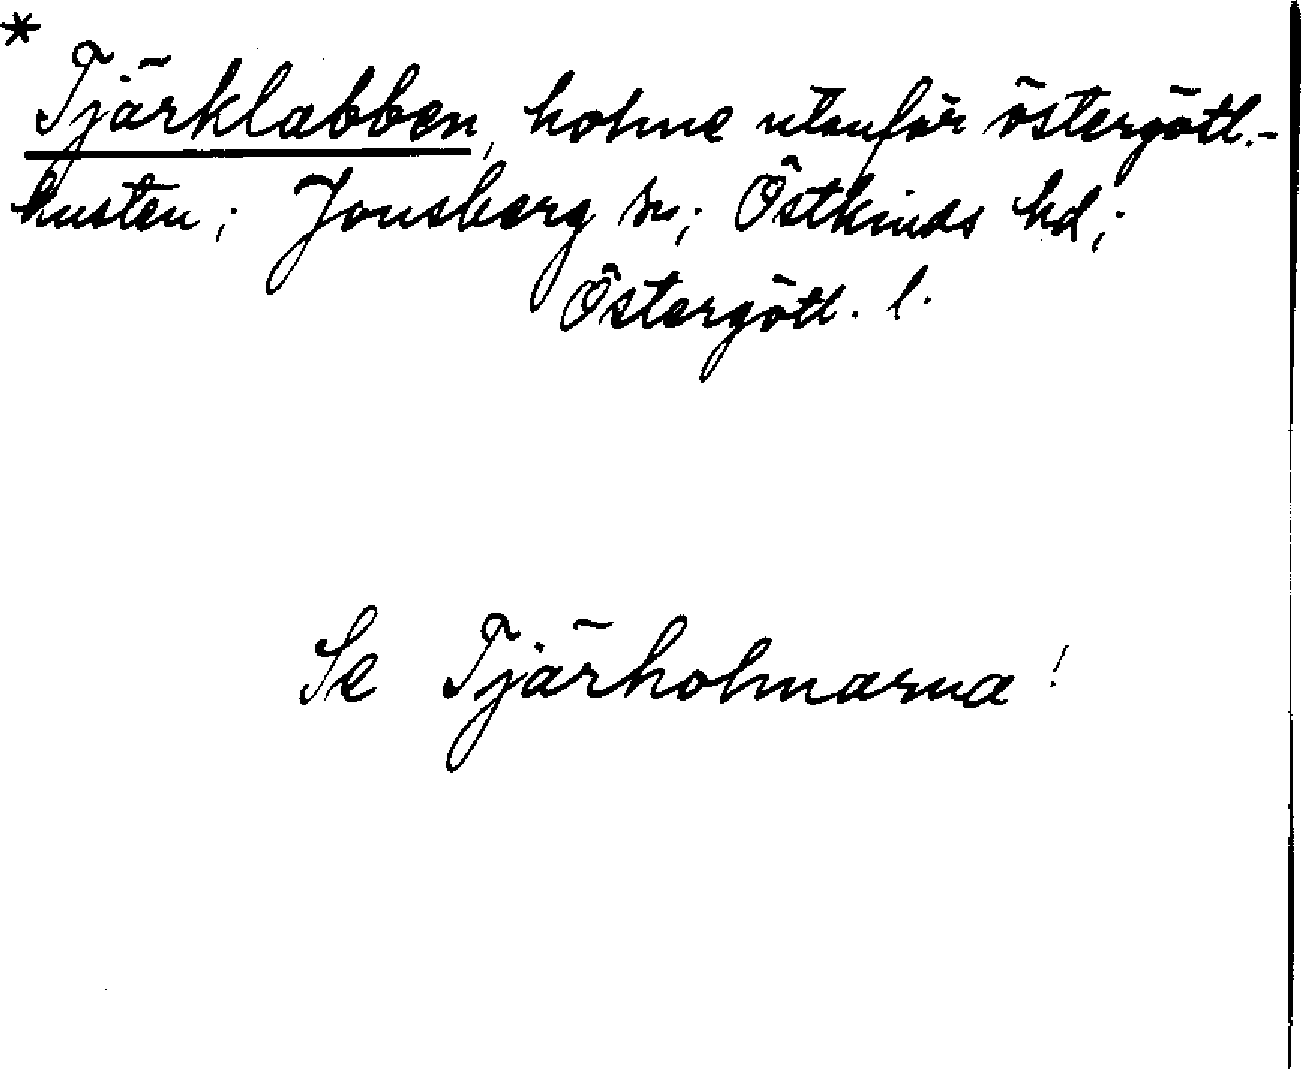 * Tjärklabben, holme utanför östergötl.-
kusten; Jonsberg sn; Östkinds hd;
Östergötl. l.
Se Tjärholmarna!